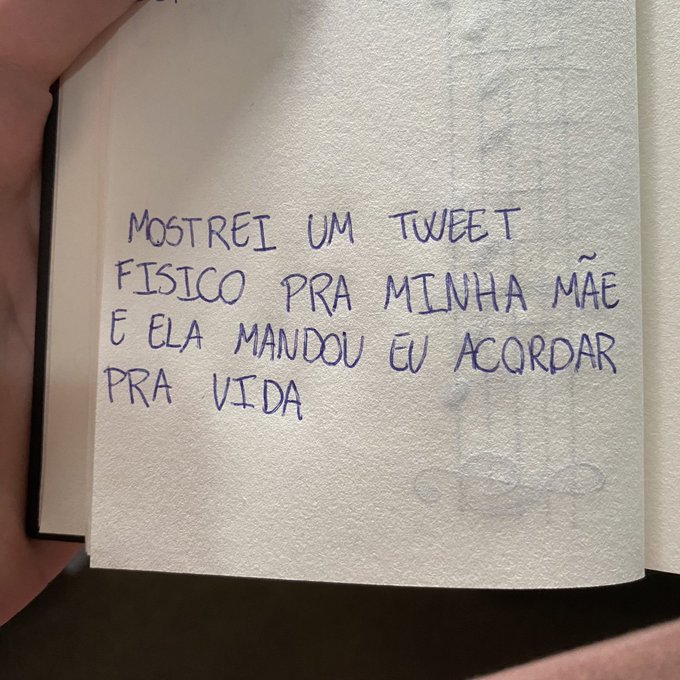 MOSTREI UM TWEET
FISICO PRA MINHA MÃE
E ELA MANDOU EU ACORDAR
PRA VIDA